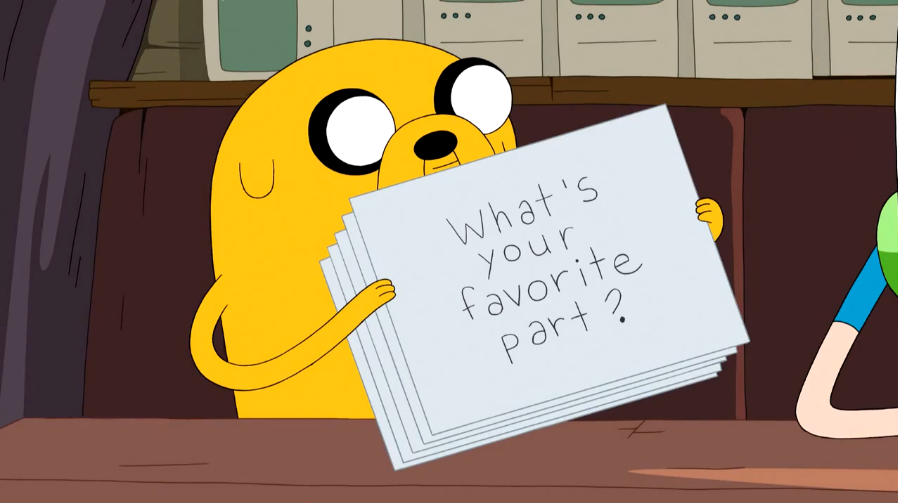 What's
your
favorite
part?